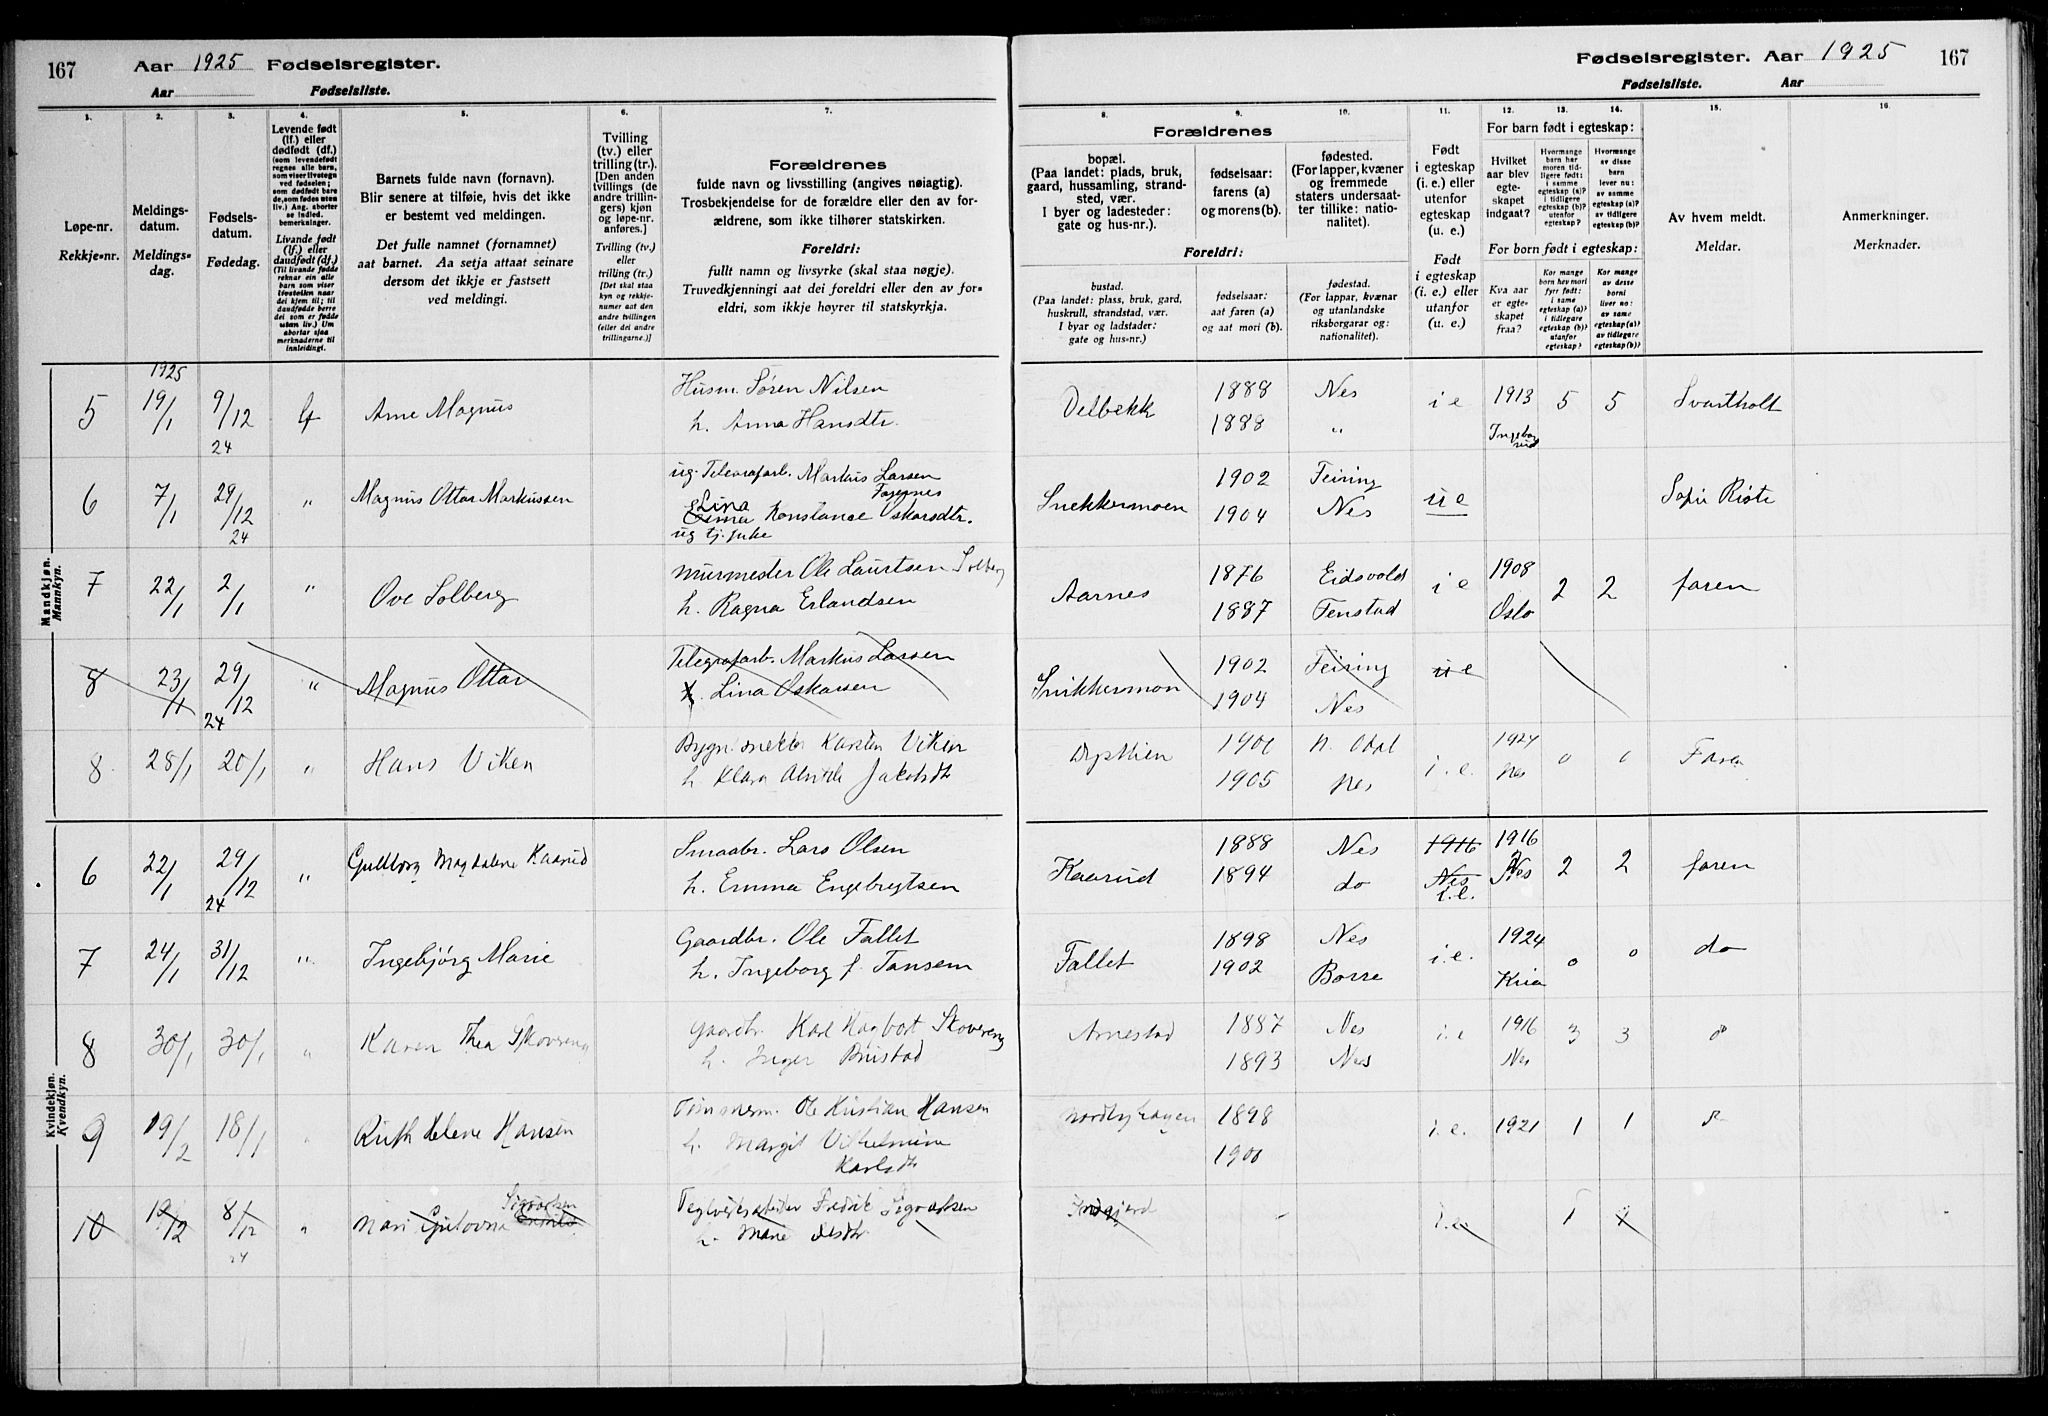 167
Aar 1925 Fødselsregister.
Aar Fødselsliste.
Fødselsregister. Aar 1925
167
Fødselsliste. Aar
1.
2.
3.
4.
5.
6.
7.
8.
9.
10.
11.
12.
13.
14.
15.
16.
Løpe-nr.
Rekkje-nr.
Meldings-
datum.
Meldings-
dag.
Fødsels-
datum.
Fødedag.
Levende født
(lf.) eller
dødfødt (df.)
Livande født
(lf.) eller
daudfødt (df.)
Barnets fulde navn (fornavn).
Blir senere at tilføie, hvis det ikke
er bestemt ved meldingen.
Det fulle namnet (fornamnet)
aat barnet. Aa setja attaat seinare
dersom det ikkje er fastsett
ved meldingi.
Tvilling
(tv.) eller
trilling (tr.)
[Den anden
tvillings (de
andre trillin-
gers) kjøn
og løpe-nr.
anføres.]
Tvilling (tv.)
eller
trilling (tr.)
[Det skal staa
kyn og rekkje-
numer aat den
andre tvillingen
(eller dei andre
trillingarne.)]
Forældrenes
fulde navn og livsstilling (angives nøiagtig).
Trosbekjendelse for de forældre eller den av for-
ældrene, som ikke tilhører statskirken.
Foreldri:
fullt namn og livsyrke (skal staa nøgje).
Truvedkjenningi aat dei foreldri eller den av for-
eldri, som ikkje høyrer til statskyrkja.
Forældrenes
bopæl.
(Paa landet: plads, bruk,
gaard, hussamling, strand-
sted, vær.
I byer og ladesteder:
gate og hus-nr.).
fødselsaar:
farens (a)
og morens (b).
fødested.
(For lapper, kvæner
og fremmede
staters undersaat-
ter tillike: natio-
nalitet).
Foreldri:
bustad.
(Paa landet: plass, bruk, gard,
huskrull, strandstad, vær.
I byar og ladstader:
gate og hus-nr.)
fødselsaar:
aat faren (a)
og aat mori (b).
fødestad.
(For lappar, kvænar
og utanlandske
riksborgarar og:
nationalitet).
Født
i egteskap
(i. e.) eller
utenfor
egteskap
(u. e.)
Født
i egteskap
(i. e.) eller
utanfor
(u. e.)
For barn født i egteskap:
Hvilket
aar blev
egte-
skapet
indgaat?
Hvormange
barn har
moren tid-
ligere født:
i samme
egteskap (a)?
i tidligere
egteskap (b)?
utenfor
egteskap?
Hvormange
av disse
barn
lever nu:
av samme
egteskap (a)?
av tidligere
egteskap (b)?
For born født i egteskap:
Kva aar
er egte-
skapet
fraa?
Kor mange
born hev mori
fyrr født:
i same
egteskap (a)?
i tidlegare
egteskap (b)?
utanfor
egteskap?
Kor mange
av desse
borni
liver no:
av same
egteskap (a)?
av tidlegare
egteskap (b)?
Av hvem meldt.
Meldar.
Anmerkninger.
Merknader.
Mandkjøn.
Mannkyn.
1925
5 19/1 9/12 24 lf Arne Magnus Husm. Søren Nilsen 1888 Nes i e 1913 5 5 Svartholt
h. Anna Hansdtr. 1888 "
6 7/1 29/12 24 " Magnus Ottar Markussen ug. Telegrafarb. Markus Larsen Snekkermoen 1902 Feiring u e
Lina Konstance Oskarsdtr. 1904 Nes
7 22/1 2/1 " Ove Solberg Murmester Ole Lauritsen Solberg Aarnes 1876 Eidsvold i e 1908 2 2 faren
h. Ragna Erlandsen 1887 Fenstad Oslo
8 23/1 29/12 24 " Magnus Ottar Telegrafarb. Markus Larsen 1902 Feiring u e
Lina Oskarsen 1904 Nes
8 28/1 20/1 " Hans Viken Karsten Viken N. Odal i. e. 1924 0 0 Faren
h. Klara 1905 Nes Nes
Kvindekjøn.
Kvendkyn.
6 22/1 29/12 24 " Guldborg Magdalene Kaarud Smaabr. Lars Olsen Kaarud 1888 Nes 1916 1916 2 2 faren
h. Emma Engebregtsen 1894 do Nes i. e. Nes
7 24/1 31/12 " Ingebjørg Marie Gaardbr. Ole Fallet Fallet 1898 Nes i. e. 1924 0 0 do
h. Ingeborg f. Tansem 1902 Borre Kria
8 30/1 30/1 " Karen Thea Skovereng Gaardbr. Karl Hagbart Skovereng Arnestad 1887 Nes i. e 1916 3 3
h. Inger 1893 Nes Nes
9 19/2 18/1 " Ruth Helene Hansen Ole Kristian Hansen Nordbyhagen 1898 i. e. 1921 1 1
h. Margit Vilhelmine
Karlsdtr
10 8/12 24 " Sigvartsen
Fredrik Sigvartsen i. e 1 1
h. Marie